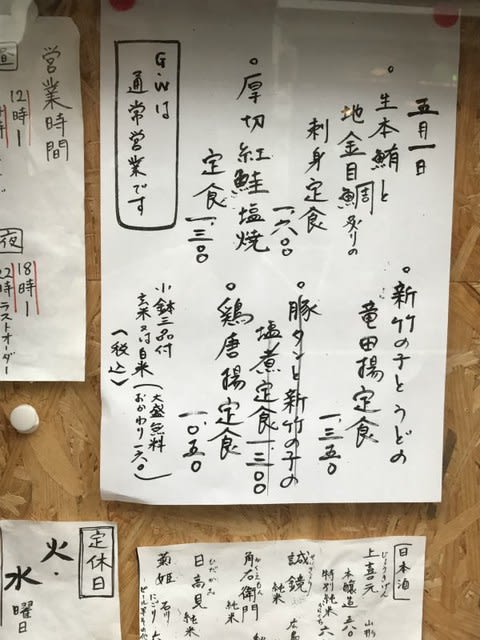 五月一日
。生本鮪と
地金目鯛炙りの
刺身定食
一、六〇〇
。厚切紅鮭塩焼
定食 一、三〇〇
G.Wは
通常営業です
。新竹の子とうどの
竜田揚定食
一、三五〇
。豚タンと新竹の子の
塩煮定食 一、三〇〇
。鶏唐揚定食
一、〇五〇
小鉢三品付
玄米又は白米(大盛無料
おかわり一六〇)
(税込)
営業時間
昼
12時ー
夜
18時ー
22時ラストオーダー
定休日
火・
水曜日
日本酒
じょうきげん
上喜元 山形
本醸造 五八〇
特別純米
誠鏡
純米
角右衛門
純米
ひだかみ
日高見
純米
菊姫 石川
にごり